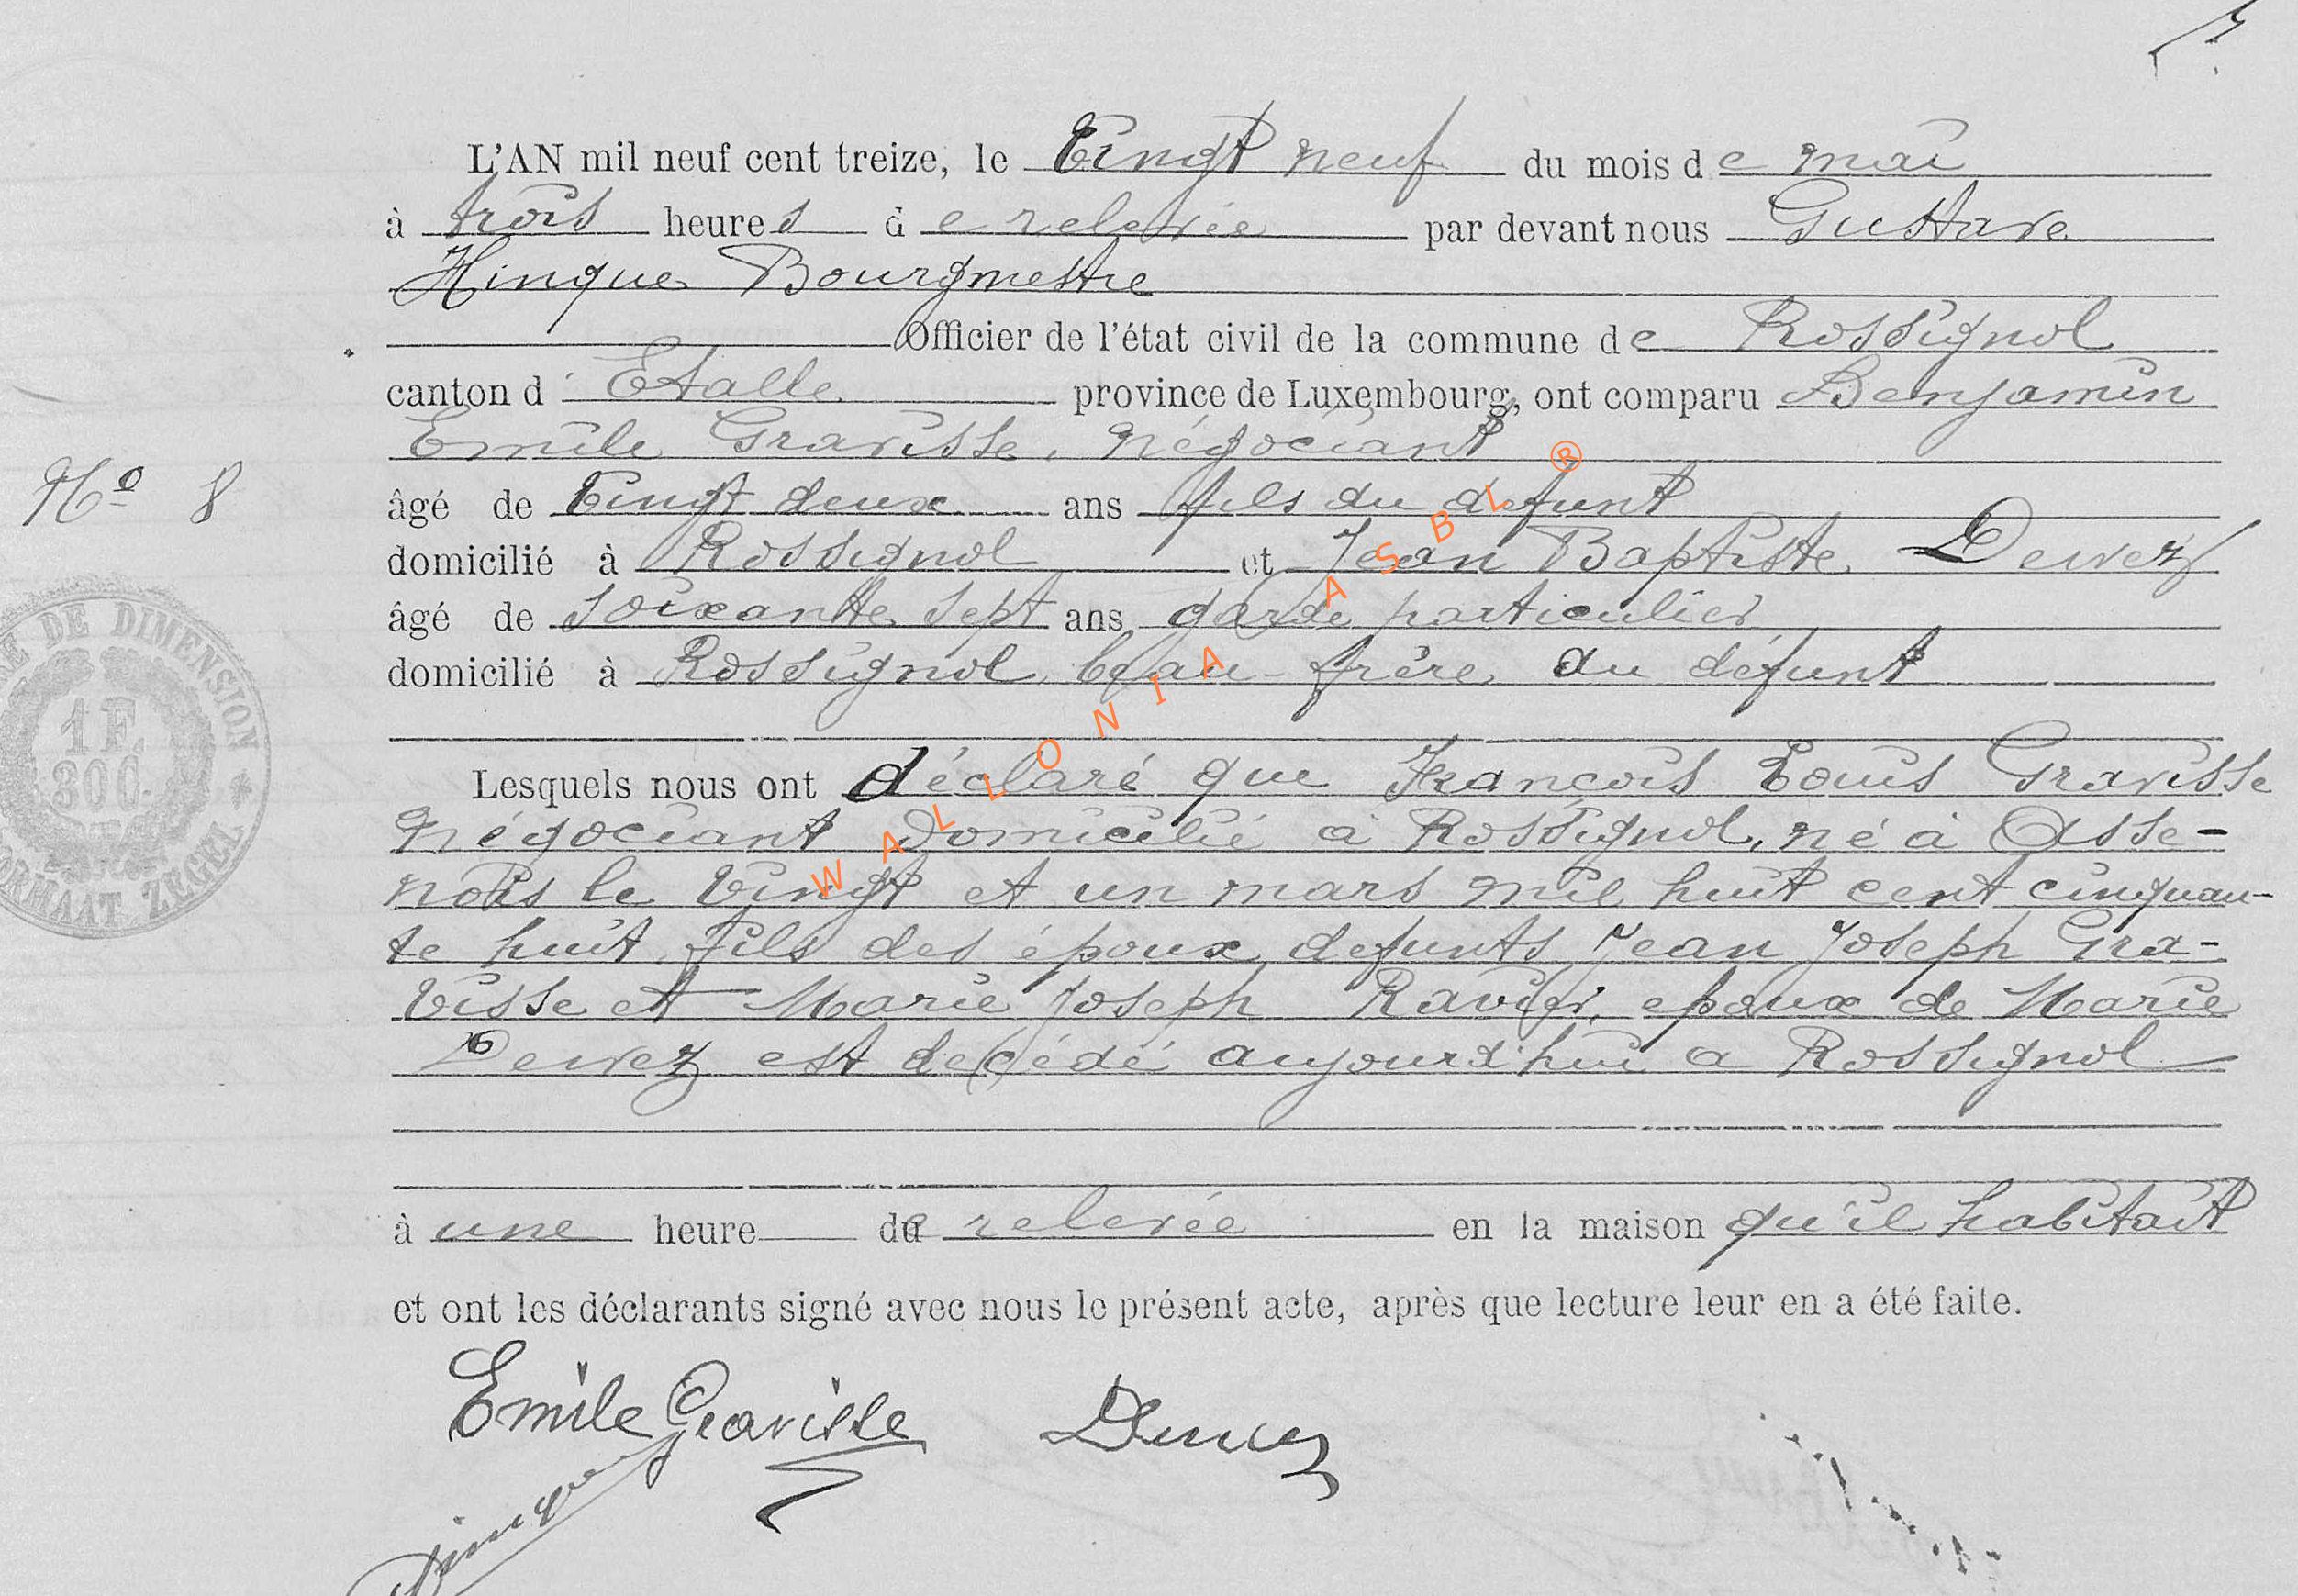 L'AN mil neuf cent treize, le Vingt neuf du mois de mai
à trois heures de relevée par devant nous Gustave
Hinque Bourgmestre
Officier de l'état civil de la commune de Rossignol
canton d'Etalle province de Luxembourg, ont comparu Benjamin
Emile Gravisse, négociant
N° 8
âgé de Vingt deux ans fils du defunt
domicilié à Rossignol et Jean Baptiste Dewez
âgé de soixante sept ans garde particulier
domicilié à Rossignol beau-frère du défunt
Lesquels nous ont déclaré que François Louis Gravisse
négociant domicilié à Rossignol, né à Asse-
nois le Vingt et un mars mil huit cent cinquan-
te huit, fils des époux defunts Jean Joseph Gra-
visse et Marie Joseph Ravier, epoux de Marie
Dewez est decédé aujourd'hui a Rossignol
à une heure de relevée en la maison qu'il habitait
et ont les déclarants signé avec nous le présent acte, après que lecture leur en a été faite.
Emile Gravisse Dewez
Hinque
DE DIMENSION
1 F. 30 C.
FORMAAT ZEGEL
WALLONIA ASBL ®